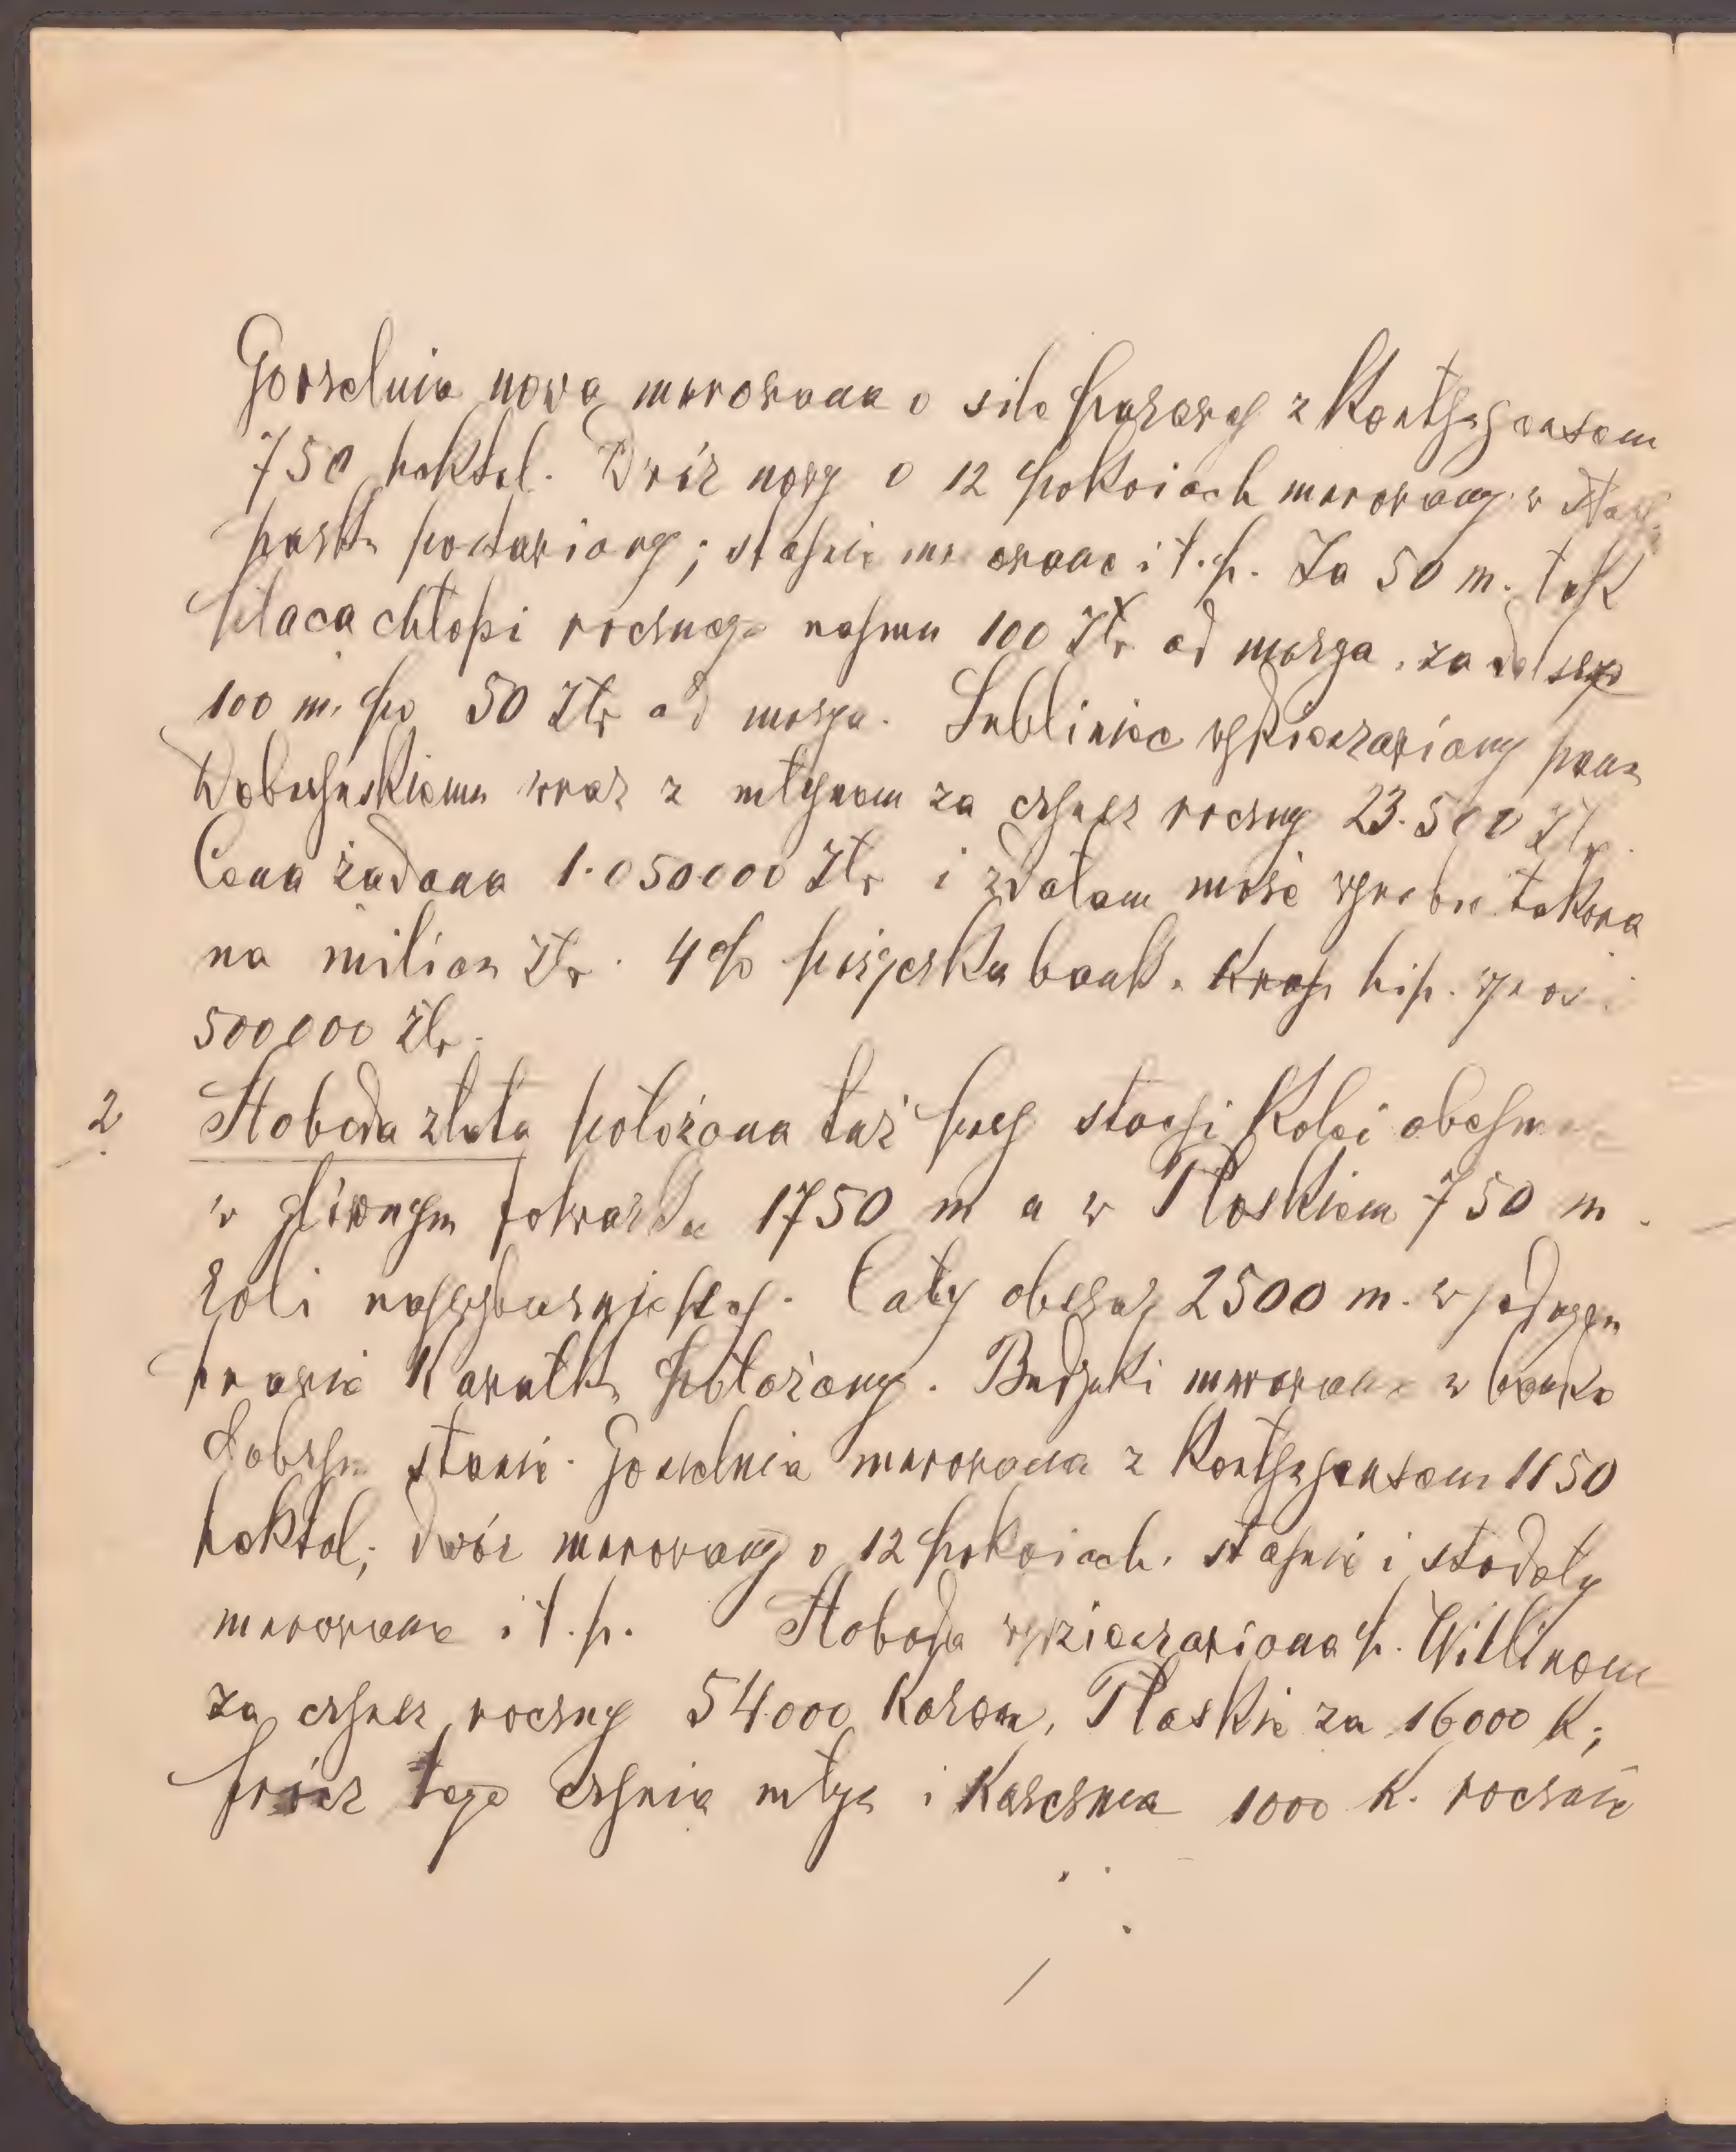 Gorzelnia nowa murowana o sile parowej z Kontyngentem
750 hektol. Dwór nowy o 12 pokoiach murowany w
parku postawiony; stajnie murowane i t. p. Za 50 m. łąk
płacą chłopi rocznego najmu 100 Złr od morga, za dalsze
100 m. po 50 Złr od morga. Lubliniec wydzierżawiony panu
wraz z młynem za czynsz roczny 23.500 Złr.
Cena żądana 1.050000 Złr i zdołam może wyrobić takową
na milion Złr. 4% pożyczka bank. Kraj. hip.
500000 Złr.
2 Słoboda złota położona tuż przy stacji Kolei obejmuje
w głównym folwarku 1750 m a w Płoskiem 750 m.
roli najpszenniejszej. Cały obszar 2500 m. w jednym
prawie Kawałku położony. Budynki murowane w bardzo
dobrym stanie. Gorzelnia murowana z Kontyngentem 1150
hektol; dwór murowany o 12 pokoiach, stajnie i stodoły
murowane i t. p. Słoboda wydzierżawiona p. Willinom
za czynsz roczny 54.000 Koron, Płoskie za 16000 K;
prócz tego czynią młyn i Karczma 1000 K. rocznie